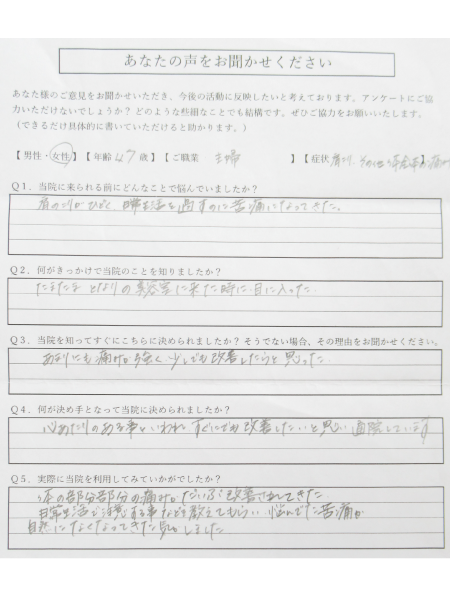 あなたの声をお聞かせください
あなた様のご意見をお聞かせいただき、今後の活動に反映したいと考えております。アンケートにご協
力いただけないでしょうか？どのような些細なことでも結構です。ぜひご協力をお願いいたします。
（できるだけ具体的に書いていただけると助かります。）
【男性・女性】【年齢 47 歳】【ご職業 主婦 】【症状 肩こり
Q1．当院に来られる前にどんなことで悩んでいましたか？
肩のこりがひどく、日常生活を過すのに苦痛になってきた。
Q2．何がきっかけで当院のことを知りましたか？
たまたま となりの美容室に来た時に目に入った。
Q3．当院を知ってすぐにこちらに決められましたか？そうでない場合、その理由をお聞かせください。
あまりにも痛みが強く 少しでも改善したらと思った
Q4．何が決め手となって当院に決められましたか？
心あたりのある事をいわれ、すぐにでも改善したいと思い通院しています
Q5．実際に当院を利用してみていかがでしたか？
体の部分部分の痛みがだいぶ改善されてきた
日常生活で注意する事などを教えてもらい 悩んでた苦痛が
自然になくなってきた気がしました